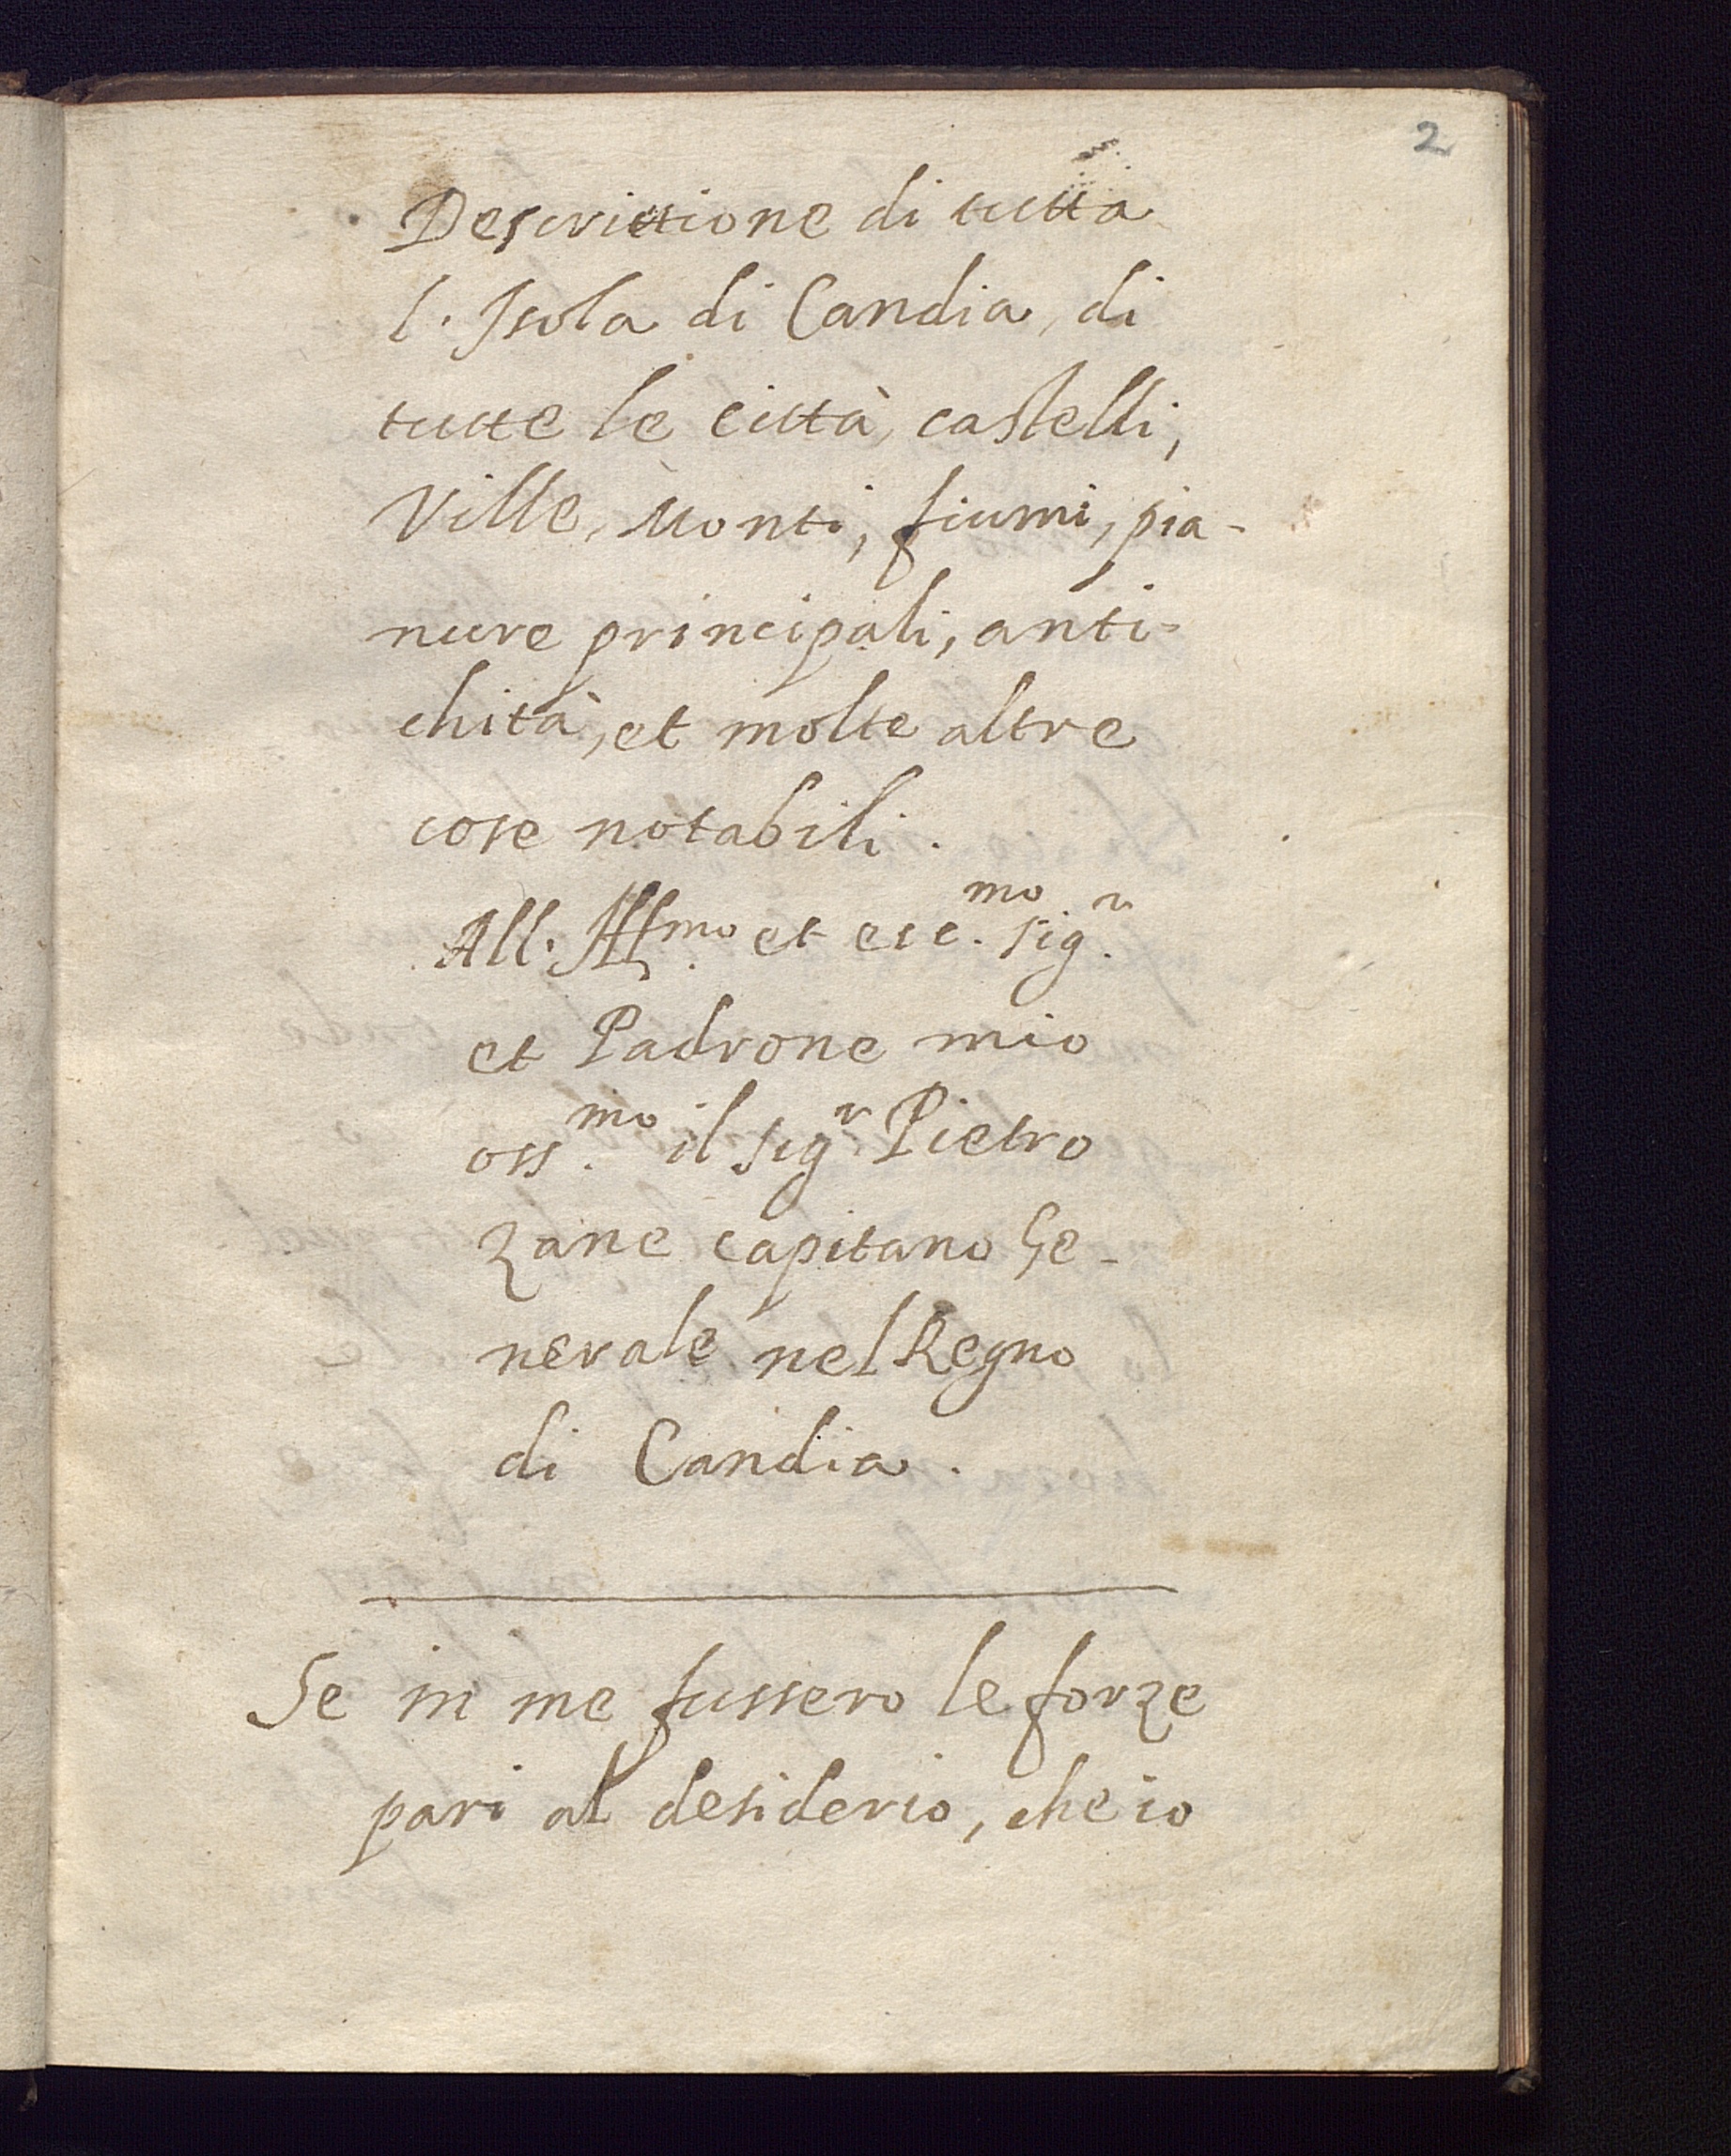 2
Descrittione di tutta
l. Isola di Candia, di
tutte le città, castelli,
Ville, Monti, fiumi, pia-
nure principali, anti-
chità, et molte altre
cose notabili.
All. Ill.mo et ecc.mo sig.r
et Padrone mio
oss.mo il sig.r Pietro
Zane capitano Ge-
nerale nel Regno
di Candia.
Se in me fussero le forze
pari al desiderio, che io